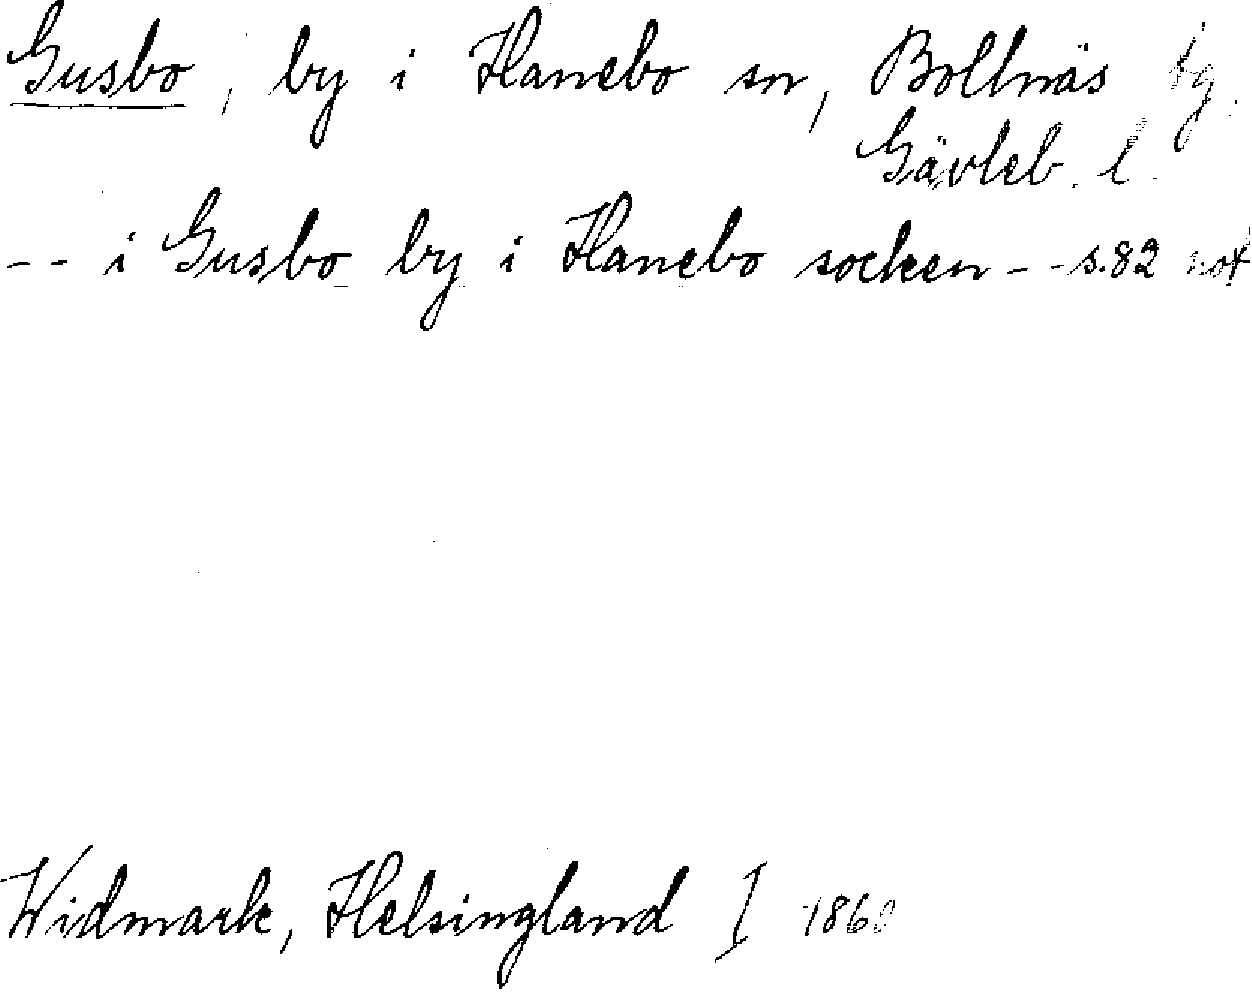 Gusbo, by i Hanebo sn, Bollnäs tg,
Gävleb. l.
-- i Gusbo by i Hanebo socken -- s. 82 not
Widmark, Helsingland I 1860